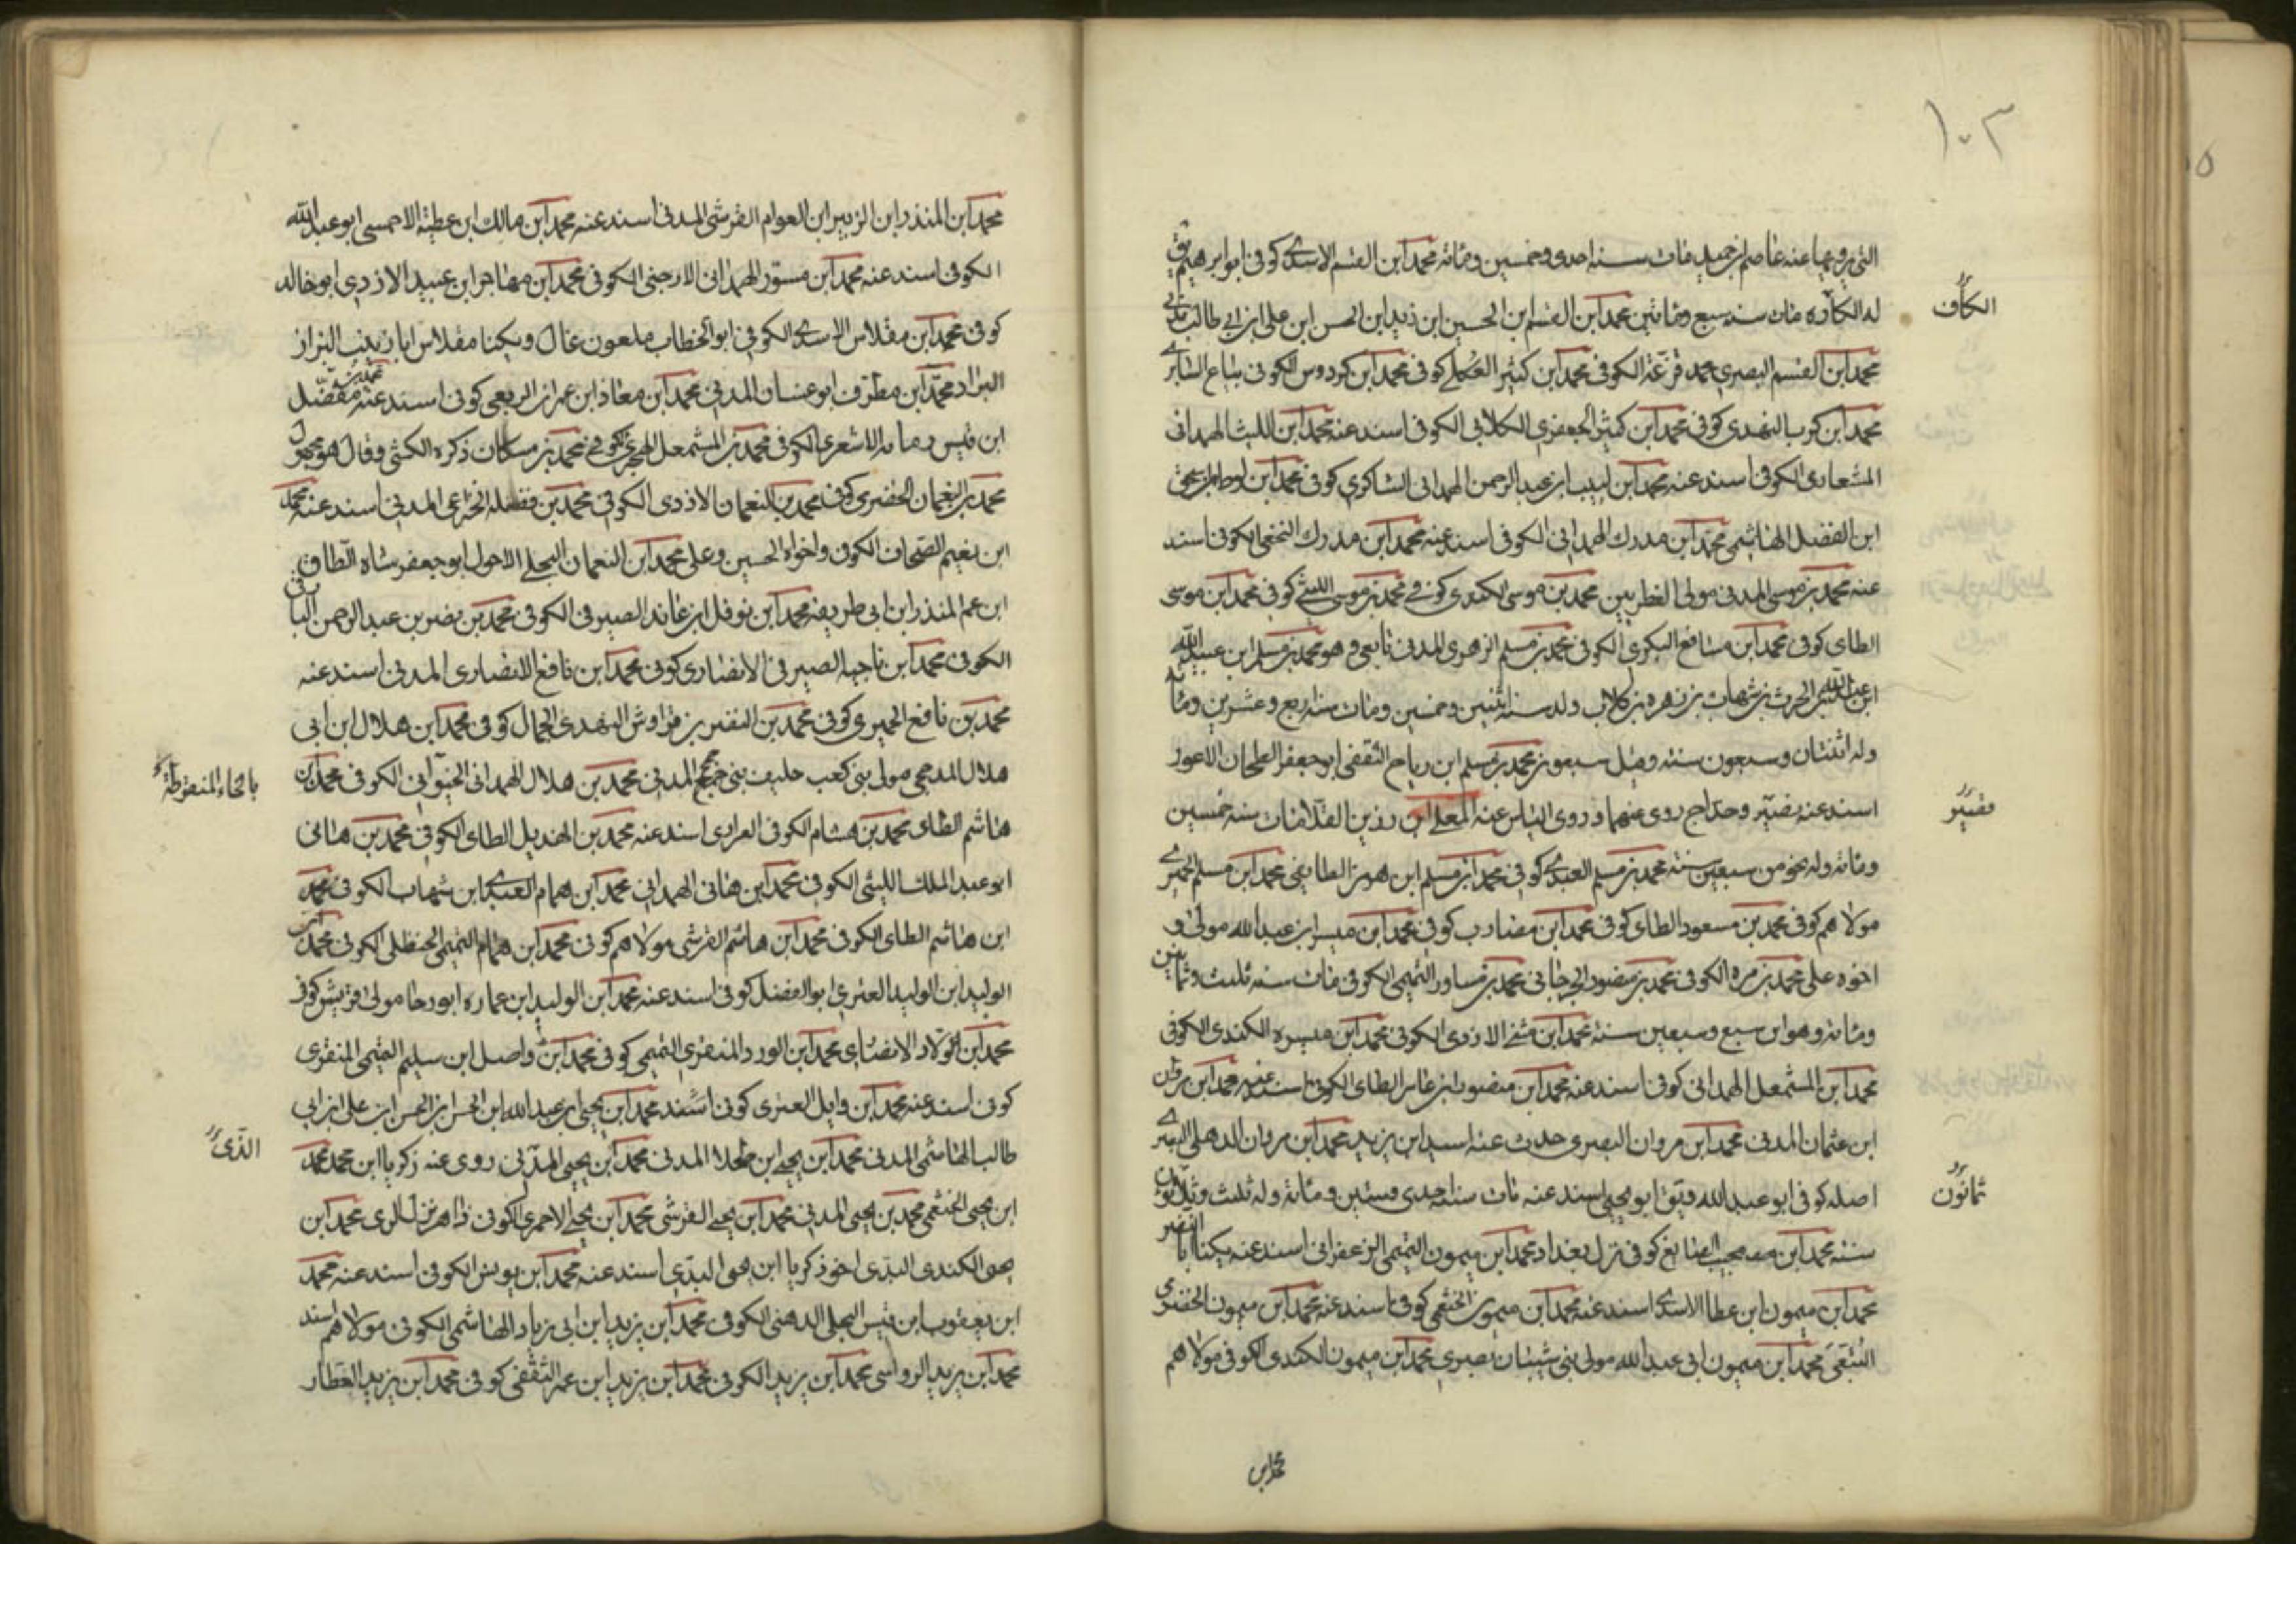 ١٠٣
التي يرويها عنه عاصم بن حميد مات سنة احدى وخمسين ومائة محمد ابن القسم الاسدى كوفى ابو ابرهيم يق
الكاف
له الكاره مات سنه سبع ومائتين محمد ابن القسم ابن الحسين ابن زيد ابن الحسن ابن على ابن ابى طالب مدنى
محمد ابن القسم البصري محمد قزعة الكوفى محمد ابن كثير العكلى كوفى محمد ابن كردوس الكوفى بياع السابرى
محمد ابن كرب النهدى كوفى محمد ابن كثير الجعفرى الكلابى الكوفى اسند عنه محمد ابن الليث الهمدانى
المشعارى الكوفى اسند عنه محمد ابن لبيب ابن عبد الرحمن الهمدانى الشاكرى كوفى محمد ابن لوط ابن اسحق
ابن الفضل الهاشمى محمد ابن مدرك الهمدانى الكوفى اسند عنه محمد ابن مدرك النخعى الكوفى اسند
عنه محمد بن موسى المدنى مولى الفطريين محمد بن موسى الكندى كوفى محمد بن موسى الليثى كوفى محمد ابن موسى
الطاى كوفى محمد ابن مسافع البكرى الكوفى محمد بن مسلم الزهرى المدنى تابعى وهو محمد بن مسلم ابن عبيد الله
ابن عبد الله ابن الحرث بن شهاب بن زهره بن كلاب ولد سنة اثنين وخمسين ومات سنة اربع وعشرين ومائة
وله اثنتان وسبعون سنة وقيل سبعون محمد بن مسلم ابن رباح الثقفى ابو جعفر الطحان الاعور
فقيير
اسند عنه فقيير وحداج روى عنهما وروى الناس عنه المعلى ابن رزين القلا مات سنه خمسين
ومائة وله نحو من سبعين سنة محمد بن مسلم العبدى كوفى محمد ابن مسلم ابن هرمز الطايفى محمد ابن مسلم الحميرى
مولاهم كوفى محمد بن مسعود الطاى كوفى محمد ابن مضارب كوفى محمد ابن ميسر ابن عبد الله مولى و
اخوه على محمد بن مره الكوفى محمد بن منصور الجرجانى محمد بن مساور التميمى الكوفى مات سنه ثلث وثمانين
ومائة وهو ابن سبع وسبعين سنة محمد ابن مثنى الازدى الكوفى محمد ابن ميسره الكندى الكوفى
محمد ابن المشمعل الهمدانى كوفى اسند عنه محمد ابن منصور ابن عامر الطاى الكوفى اسند عنه محمد ابن مروان
ابن عثمان المدنى محمد ابن مروان البصرى حدث عنه اسيد ابن زيد محمد ابن مروان الذهلى البصرى
ثمانون
اصله كوفى ابو عبد الله ويق ابو يحيى اسند عنه مات سنة احدى وستين ومائة وله ثلث وثلاثون
سنة محمد ابن الصايغ كوفى نزل بغداد محمد ابن ميمون التميمى الزعفرانى اسند عنه يكنا ابا النصر
محمد ابن ميمون ابن عطا الاسدى اسند عنه محمد ابن ميمون الخثعمى كوفى اسند عنه محمد ابن ميمون الحضرمى
محمد ابن ميمون ابى عبد الله مولى بنى شيبان بصرى محمد ابن ميمون الكندى الكوفى مولاهم
محمد ابن
محمد ابن المنذر ابن الزبير ابن العوام القرشى المدنى اسند عنه محمد ابن مالك ابن عطية الاحمسى ابو عبد الله
الكوفى اسند عنه محمد ابن مستور الهمدانى الارحبى الكوفى محمد ابن مهاجر ابن عبيد الازدى ابو خالد
كوفى محمد ابن مقلاص الاسدى الكوفى ابو الخطاب ملعون غال ويكنا مقلاص ابا زينب البزاز
البراد محمد ابن مطرف ابو غسان المدنى محمد ابن معاذ ابن عمران الربعى كوفى اسند عنه محمد بن مفضل
ابن قيس رمانه الاشعرى الكوفى محمد بن المشمعل الهجرى كوفى محمد بن مسكان ذكره الكشى وقال هو مجهول
محمد بن النعمان الحضرمى كوفى محمد بن النعمان الازدى الكوفى محمد بن نضله الخزاعى المدنى اسند عنه محمد
ابن نعيم الصحاف الكوفى واخواه الحسين وعلى محمد ابن النعمان البجلى الاحول ابو جعفر شاه الطاق
ابن عم المنذر ابن ابى طريفه محمد ابن نوفل ابن عائذ الصيرفى الكوفى محمد بن نصر بن عبد الرحمن البارقى
الكوفى محمد ابن ناجيه الصيرفى الانصارى كوفى محمد ابن نافع الانصارى المدنى اسند عنه
محمد بن نافع الحميرى كوفى محمد بن النضر بن قرواش النهدى الجمال كوفى محمد ابن هلال ابن ابى
بالخاء المنقوطة
هلال المذحجى مولى بنى كعب حليف بنى جمح المدنى محمد بن هلال الهمدانى الخيوانى الكوفى محمد بن
هاشم الطاى محمد بن هشام الكوفى اسند عنه محمد بن الهذيل الطاى الكوفى محمد بن هانى
ابو عبد الملك الليثى الكوفى محمد ابن هانى الهمدانى محمد ابن همام العبدى ابن شهاب الكوفى محمد
ابن هاشم الطاى الكوفى محمد ابن هاشم القرشى مولاهم كوفى محمد ابن همام التميمى الحنظلى الكوفى محمد ابن
الوليد ابن الوليد العنزى ابو الفضل كوفى اسند عنه محمد ابن الوليد ابن عماره ابو رجا مولى قريش كوفى
محمد ابن الولاد الانصارى محمد ابن الورد المنقرى التميمى كوفى محمد ابن واصل ابن سليم التميمى المنقرى
كوفى اسند عنه محمد ابن وايل العنزى كوفى اسند محمد ابن يحيى ابن عبد الله ابن الحسن ابن الحسن ابن على ابن ابى
الذى
طالب الهاشمى المدنى محمد ابن يحيى ابن طلحلا المدنى محمد ابن يحيى المدنى روى عنه زكريا ابن محمد محمد
ابن يحيى الخثعمى محمد بن يحيى المدنى محمد ابن يحيى القرشى محمد ابن يحيى الاحمرى الكوفى ذاهر نزل الرى محمد ابن
يحيى الكندى البدى اخو زكريا ابن يحيى البدى اسند عنه محمد ابن يونس الكوفى اسند عنه محمد
ابن يعقوب ابن قيس البجلى الدهنى الكوفى محمد ابن يزيد ابن ابى زياد الهاشمى الكوفى مولاهم اسند
محمد ابن يزيد الرواسى محمد ابن يزيد الكوفى محمد ابن يزيد ابن عمر الثقفى كوفى محمد ابن يزيد العطار